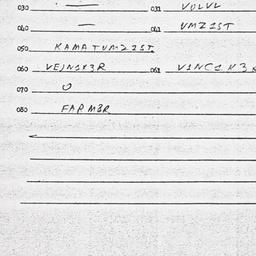 030 — 031 VOLVL
040 — 041 UMZIST
050 KAMATUMZIST
060 VEJNSX3R 061
070 O
080 FARM3R